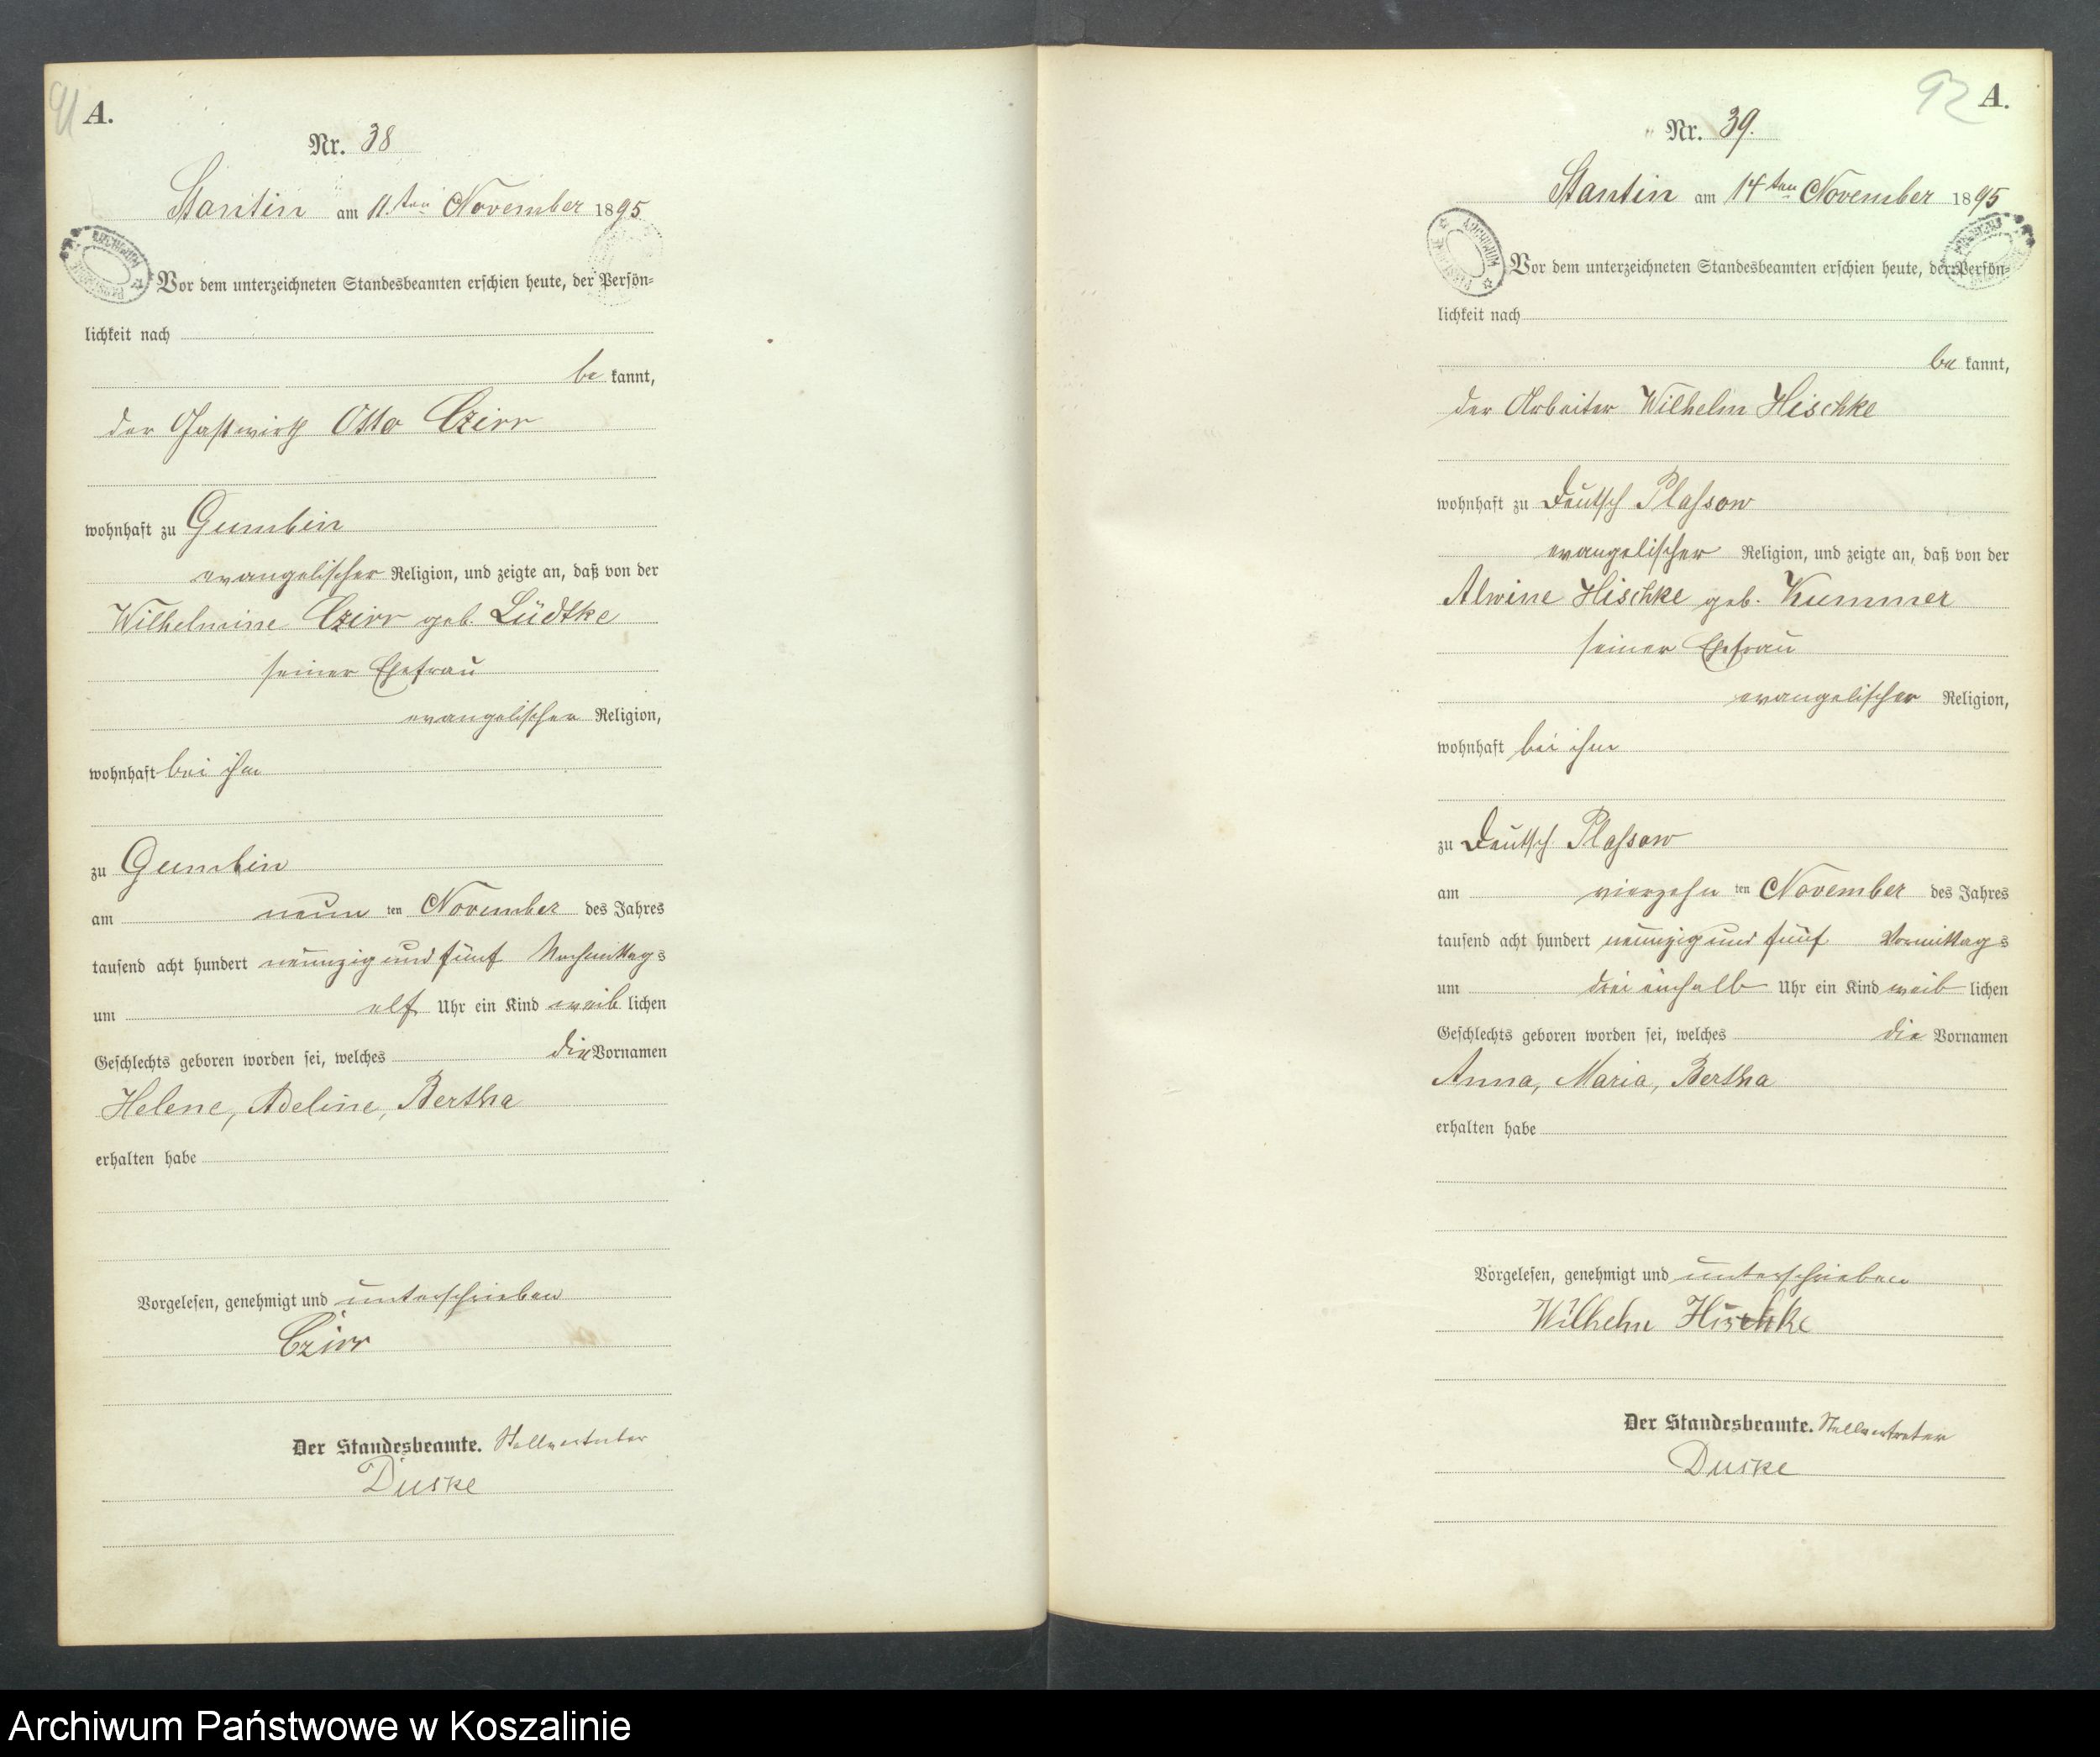 91
A.
Nr. 38
Stantin am 11. ten November 1895.
Vor dem unterzeichneten Standesbeamten erschien heute, der Persön=
lichkeit nach
be kannt,
der Gastwirth Otto Czirr
wohnhaft zu Gumbin
evangelischer Religion, und zeigte an, daß von der
Wilhelmine Czirr geb. Lüdtke
seiner Ehefrau
evangelischer Religion,
wohnhaft bei ihm
zu Gumbin
am neun ten November des Jahres
tausend acht hundert neunzig und fünf Nachmittags
um elf Uhr ein Kind weib lichen
Geschlechts geboren worden sei, welches die Vornamen
Helene, Adeline, Bertha
erhalten habe
Vorgelesen, genehmigt und unterschrieben
Czirr
Der Standesbeamte. Stellvertreter
Duske
92
A.
Nr. 39.
Stantin am 14 ten November 1895
ARCHIWUM
Vor dem unterzeichneten Standesbeamten erschien heute, der Persön=
lichkeit nach
be kannt,
der Arbeiter Wilhelm Hischke
wohnhaft zu Deutsch Plassow
evangelischer Religion, und zeigte an, daß von der
Alwine Hischke geb. Kummer
seiner Ehefrau
evangelischer Religion,
wohnhaft bei ihm
zu Deutsch Plassow
am vierzehn ten November des Jahres
tausend acht hundert neunzig und fünf Vormittags
um drei einhalb Uhr ein Kind weib lichen
Geschlechts geboren worden sei, welches die Vornamen
Anna, Maria, Bertha
erhalten habe
Vorgelesen, genehmigt und unterschrieben
Wilhelm Hischke
Der Standesbeamte. Stellvertreter
Duske
Archiwum Państwowe w Koszalinie